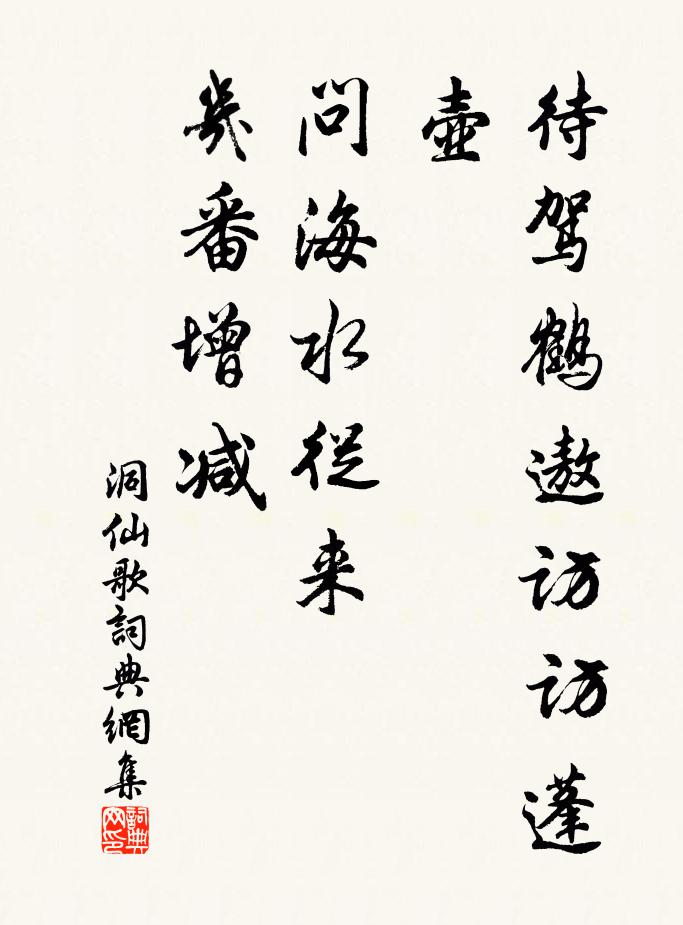 待駕鶴遨訪訪蓬
壺
問海水從来
幾番增減
洞仙歌詞典網集
詞典网印